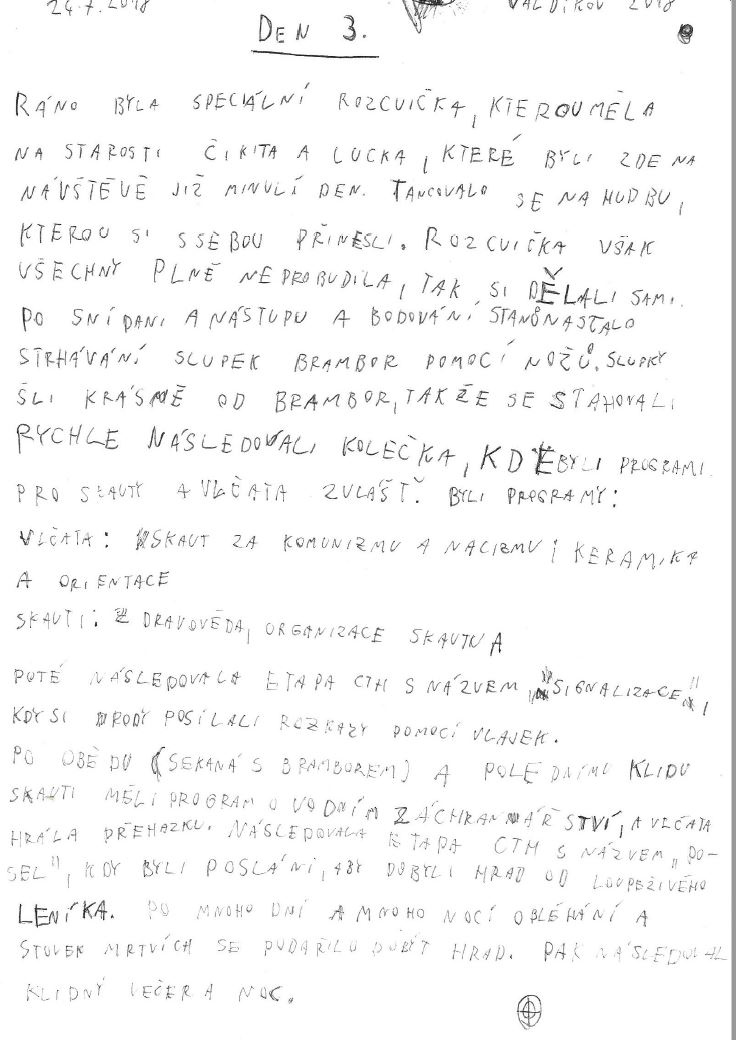 24.7.2018 VALDÍKOV 2018
DEN 3.
RÁNO BYLA SPECIÁLNÍ ROZCVIČKA, KTEROU MĚLA
NA STAROSTI ČIKITA A LUCKA, KTERÉ BYLI ZDE NA
NÁVŠTĚVĚ JIŽ MINULÍ DEN. TANCOVALO SE NA HUDBU,
KTEROU SI SSEBOU PŘINESLI. ROZCVIČKA VŠAK
VŠECHNY PLNĚ NEPROBUDILA, TAK SI DĚLALI SAMI.
PO SNÍDANI A NÁSTUPU A BODOVÁNÍ STANŮ NASTALO
STRHÁVÁNÍ SLUPEK BRAMBOR POMOCÍ NOŽŮ. SLUPKY
ŠLI KRÁSNĚ OD BRAMBOR, TAKŽE SE STAHOVALI
RYCHLE NÁSLEDOVALI KOLEČKA, KDE BYLI PROGRAMI
PRO SKAUTY A VLČATA ZVLÁŠŤ. BYLI PROGRAMY:
VLČATA: SKAUT ZA KOMUNIZMU A NACIZMU, KERAMIKA
A ORIENTACE
SKAUTI: ZDRAVOVĚDA, ORGANIZACE SKAUTNA
POTÉ NÁSLEDOVALA ETAPA CTH S NÁZVEM „SIGNALIZACE",
KDY SI RODY POSÍLALI ROZKAZY POMOCÍ VLAJEK.
PO OBĚDU (SEKANÁ S BRAMBOREM) A POLEDNÍMU KLIDU
SKAUTI MĚLI PROGRAM O VODNÍM ZÁCHRANNÁŘSTVÍ, A VLČATA
HRÁLA PŘEHAZKU. NÁSLEDOVALA ETAPA CTH S NÁZVEM „PO-
SEL", KDY BYLI POSLÁNI, ABY DOBYLI HRAD OD LOUPEŽIVÉHO
LENÍKA. PO MNOHO DNÍ A MNOHO NOCÍ OBLÉHÁNÍ A
STOVEK MRTVÍCH SE PODAŘILO DOBÍT HRAD. PAK NÁSLEDOVAL
KLIDNÝ VEČER A NOC.